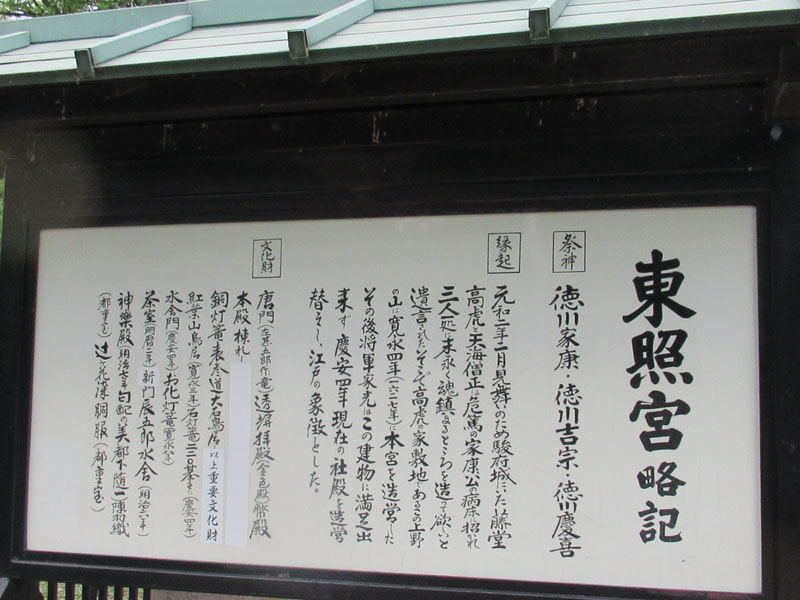 東照宮略記
祭神
徳川家康・徳川吉宗・徳川慶喜
縁起
元和二年二月見舞いのため駿府城にいた藤堂
高虎と天海僧正は危篤の家康公の病床に招かれ
三人一処に末永く魂鎮まるところを造って欲しいと
遺言された。そこで高虎の家敷地であるこの上野
の山に寛永四年(一六二七年)に本宮を造営した
その後将軍家光はこの建物に満足出
来ず慶安四年現在の社殿を造営
替えし、江戸の象徴とした。
文化財
唐門(左甚五郎作竜)透塀拝殿(金色殿)幣殿
本殿棟札
銅灯篭表参道大石鳥居以上重要文化財
紅葉山鳥居(寛永三年)石灯篭二三〇基(慶安四年)
水舎門(慶安四年)お化灯篭寛永八年
茶室(明暦二年)新門辰五郎水舎(明治六年)
神楽殿明治七年勾配の美都下随一陣羽織
(都重宝)辻ヶ花染胴服(都重宝)